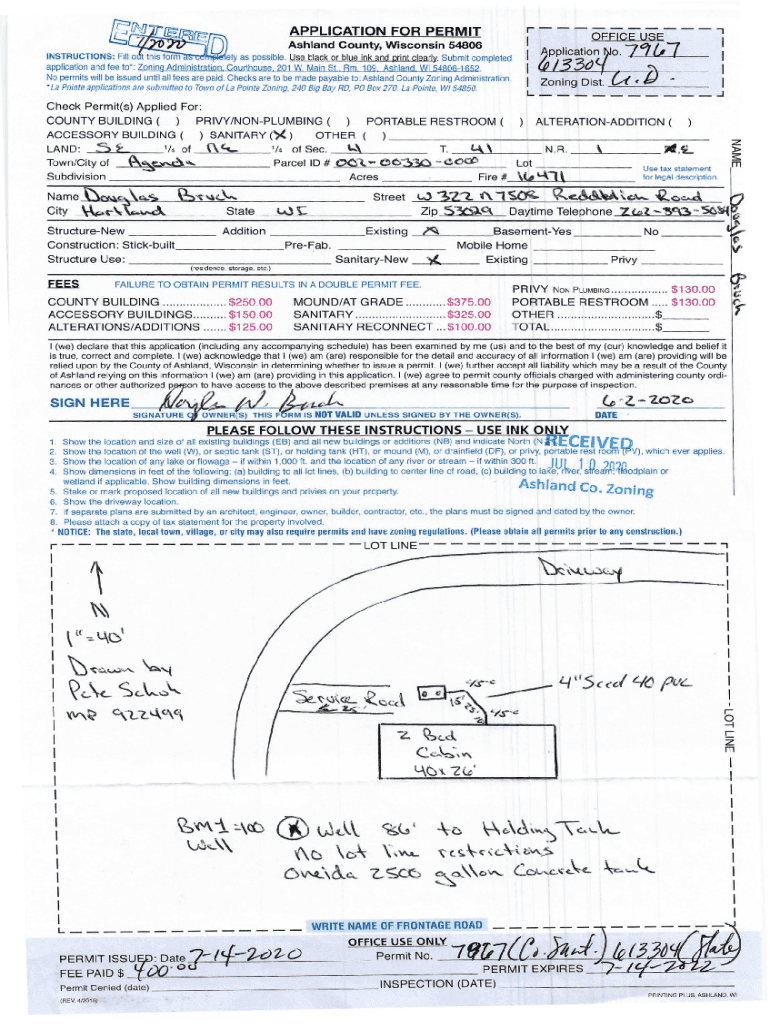 ENTERED
7/2020
APPLICATION FOR PERMIT
Ashland County, Wisconsin 54806
INSTRUCTIONS: Fill out this form as completely as possible. Use black or blue ink and print clearly. Submit completed
application and fee to*: Zoning Administration, Courthouse, 201 W. Main St., Rm. 109, Ashland, WI 54806-1652.
No permits will be issued until all fees are paid. Checks are to be made payable to: Ashland County Zoning Administration
*La Pointe applications are submitted to Town of La Pointe Zoning, 240 Big Bay RD, PO Box 270, La Pointe, WI 54850.
OFFICE USE
Application No. 7967
613304
Zoning Dist. U.D.
Check Permit(s) Applied For:
COUNTY BUILDING ( ) PRIVY/NON-PLUMBING ( ) PORTABLE RESTROOM ( ) ALTERATION-ADDITION ( )
ACCESSORY BUILDING ( ) SANITARY (X) OTHER ( )
LAND: SE 1/4 of NE 1/4 of Sec. 4 T. 41 N.R. 1
Town/City of Agenda Parcel ID # 002-00330-0000 Lot
Subdivision Acres Fire # 16471
Use tax statement
for legal description.
Name Douglas Bruch Street W322 N7508 Road
City Hartland State WI Zip 53029 Daytime Telephone 262-393-5084
NAME Douglas Bruch
Structure-New Addition Existing X Basement-Yes No
Construction: Stick-built Pre-Fab. Mobile Home
Structure Use: Sanitary-New X Existing Privy
(residence, storage, etc.)
FEES FAILURE TO OBTAIN PERMIT RESULTS IN A DOUBLE PERMIT FEE.
COUNTY BUILDING .................. $250.00 MOUND/AT GRADE ........... $375.00 PRIVY NON PLUMBING ................ $130.00
ACCESSORY BUILDINGS......... $150.00 SANITARY ......................... $325.00 PORTABLE RESTROOM ..... $130.00
ALTERATIONS/ADDITIONS ...... $125.00 SANITARY RECONNECT ... $100.00 OTHER ..................................$
TOTAL....................................$
I (we) declare that this application (including any accompanying schedule) has been examined by me (us) and to the best of my (our) knowledge and belief it
is true, correct and complete. I (we) acknowledge that I (we) am (are) responsible for the detail and accuracy of all information I (we) am (are) providing will be
relied upon by the County of Ashland, Wisconsin in determining whether to issue a permit. I (we) further accept all liability which may be a result of the County
of Ashland relying on this information I (we) am (are) providing in this application. I (we) agree to permit county officials charged with administering county ordi-
nances or other authorized person to have access to the above described premises at any reasonable time for the purpose of inspection.
SIGN HERE Douglas W. Bruch 6-2-2020
SIGNATURE OF OWNER(S) THIS FORM IS NOT VALID UNLESS SIGNED BY THE OWNER(S). DATE
PLEASE FOLLOW THESE INSTRUCTIONS – USE INK ONLY
1. Show the location and size of all existing buildings (EB) and all new buildings or additions (NB) and indicate North (N
2. Show the location of the well (W), or septic tank (ST), or holding tank (HT), or mound (M), or drainfield (DF), or privy, portable rest room (PV), which ever applies.
3. Show the location of any lake or flowage – if within 1,000 ft. and the location of any river or stream – if within 300 ft.
4. Show dimensions in feet of the following: (a) building to all lot lines, (b) building to center line of road, (c) building to lake, river, stream, floodplain or
wetland if applicable. Show building dimensions in feet.
5. Stake or mark proposed location of all new buildings and privies on your property.
6. Show the driveway location.
7. If separate plans are submitted by an architect, engineer, owner, builder, contractor, etc., the plans must be signed and dated by the owner.
8. Please attach a copy of tax statement for the property involved.
* NOTICE: The state, local town, village, or city may also require permits and have zoning regulations. (Please obtain all permits prior to any construction.)
RECEIVED
JUL 10 2020
Ashland Co. Zoning
LOT LINE
Driveway
N
1"=40'
Drawn by
Pete Schoh
MP 922499
Service Road
45-0
15'
25'
45-0
4" Sced 40 PVC
2 Bed
Cabin
40x26'
LOT LINE
BM1=100 Well 86' to Holding Tank
Well no lot line restrictions
Oneida 2500 gallon Concrete tank
WRITE NAME OF FRONTAGE ROAD
OFFICE USE ONLY
PERMIT ISSUED: Date 7-14-2020 Permit No. 7967 (Co. Sanit.) 613304 (State)
FEE PAID $ 400.00 PERMIT EXPIRES 7-14-2022
Permit Denied (date) INSPECTION (DATE)
(REV. 4/2016) PRINTING PLUS, ASHLAND, WI